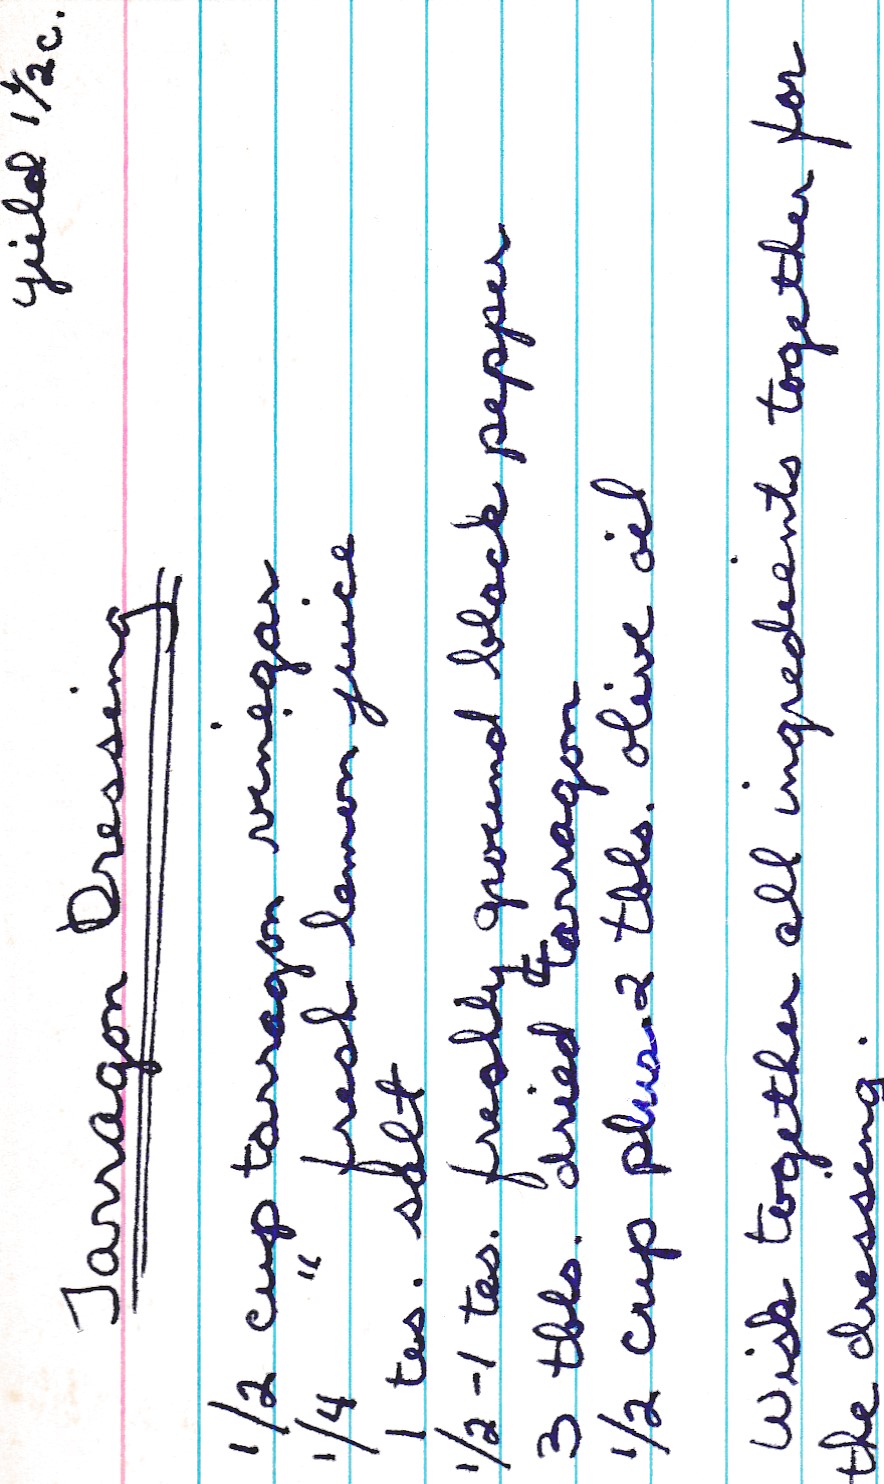 yield 1 1/2 c.
Tarragon Dressing
1/2 cup tarragon vinegar
1/4 " fresh lemon juice
1 tes. salt
1/2 - 1 tes. freshly ground black pepper
3 tbls. dried tarragon
1/2 cup plus 2 tbls. olive oil
Wisk together all ingredients together for
the dressing.